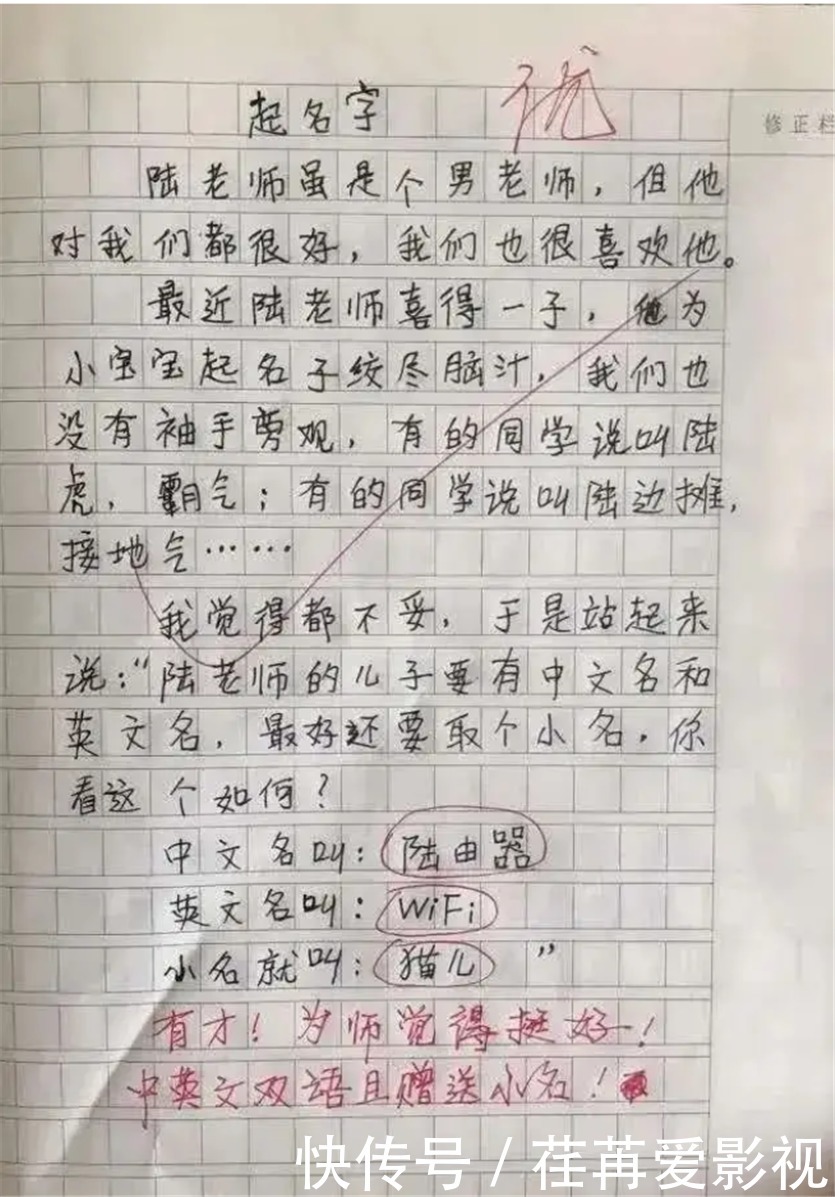 起名字
优
修正栏
陆老师虽是个男老师，但他
对我们都很好，我们也很喜欢他。
最近陆老师喜得一子，他为
小宝宝起名子绞尽脑汁，我们也
没有袖手旁观，有的同学说叫陆
虎，霸气；有的同学说叫陆边摊，
接地气……
我觉得都不妥，于是站起来
说：“陆老师的儿子要有中文名和
英文名，最好还要取个小名，你
看这个如何？
中文名叫：陆由器
英文名叫：WiFi
小名就叫：猫儿”
有才！为师觉得挺好！
中英文双语且赠送小名！
快传号／荏苒爱影视